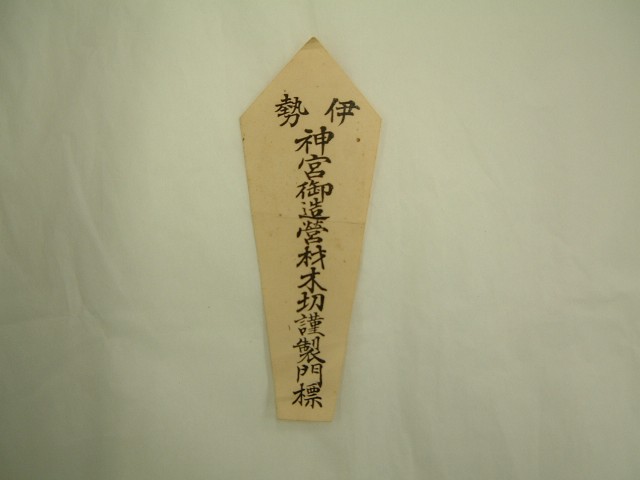 伊勢
神宮御造營材木切謹製門標